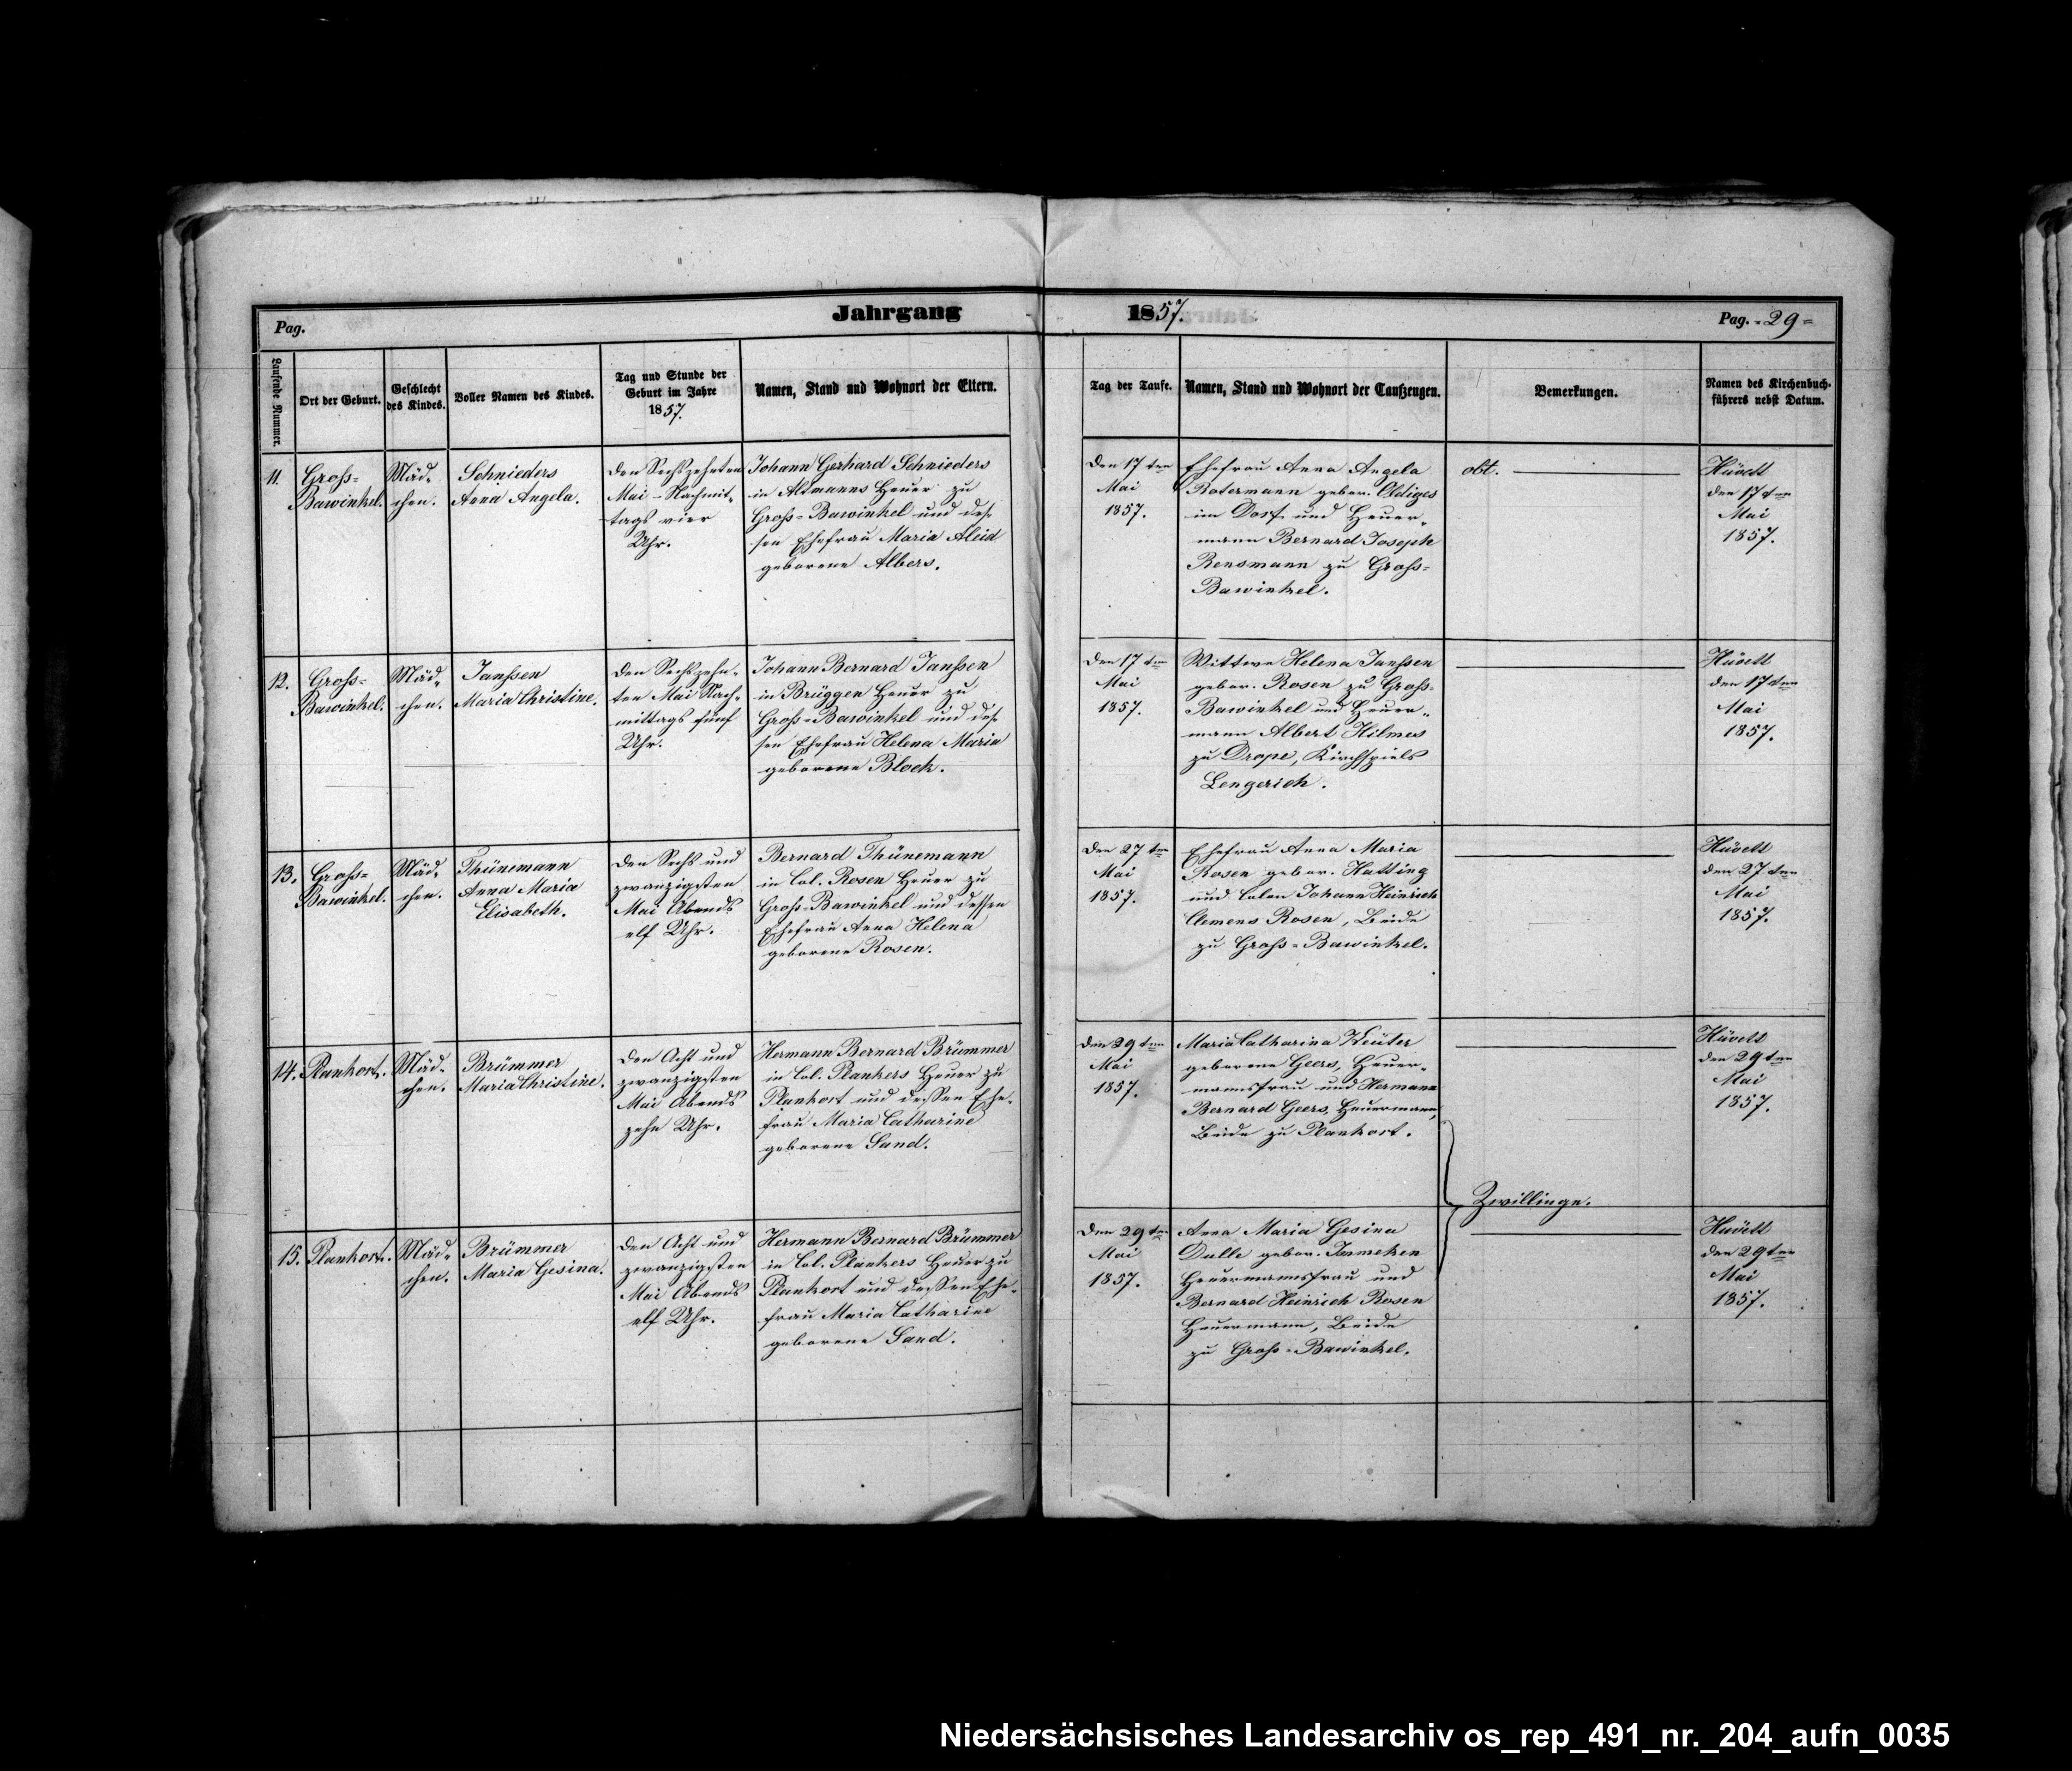 Jahrgang 1857.
Pag.
Pag. = 29 =
Laufende Nummer.
Ort der Geburt.
Geschlecht
des Kindes.
Voller Namen des Kindes.
Tag und Stunde der
Geburt im Jahre
1857.
Namen, Stand und Wohnort der Eltern.
Tag der Taufe.
Namen, Stand und Wohnort der Taufzeugen.
Bemerkungen.
Namen des Kirchenbuch-
führers nebst Datum.
11.
Groß=
Bawinkel.
Mäd-
chen.
Schnieders
Anna Angela.
Den Sechszehnten
Mai - Nachmit-
tags vier
Uhr.
Johann Gerhard Schnieders
in Altmanns Heuer zu
Groß=Bawinkel und des-
sen Ehefrau Maria Aleid
geborene Albers.
Den 17ten
Mai
1857.
Ehefrau Anna Angela
Rotermann gebor. Oldiges
im Dorf und Heuer-
mann Bernard Joseph
Rensmann zu Groß=
Bawinkel.
obt.
Hüvett
den 17ten
Mai
1857.
12.
Groß=
Bawinkel.
Mäd-
chen.
Janßen
Maria Christine.
Den Sechszehn-
ten Mai Nach-
mittags fünf
Uhr.
Johann Bernard Janßen
in Brüggen Heuer zu
Groß=Bawinkel und des-
sen Ehefrau Helena Maria
geborene Block.
Den 17ten
Mai
1857.
Wittwe Helena Janßen
gebor. Rosen zu Groß=
Bawinkel und Heuer-
mann Albert Hilmes
zu Drope, Kirchspiels
Lengerich.
Hüvett
den 17ten
Mai
1857.
13.
Groß=
Bawinkel.
Mäd-
chen.
Thünemann
Anna Maria
Elisabeth.
Den Sechs und
zwanzigsten
Mai Abends
elf Uhr.
Bernard Thünemann
in Col. Rosen Heuer zu
Groß=Bawinkel und dessen
Ehefrau Anna Helena
geborene Rosen.
Den 27ten
Mai
1857.
Ehefrau Anna Maria
Rosen gebor. Hatting
und Colon Johann Heinrich
Clemens Rosen, Beide
zu Groß=Bawinkel.
Hüvett
den 27ten
Mai
1857.
14.
Plankort.
Mäd-
chen.
Brümmer
Maria Christine.
Den Acht und
zwanzigsten
Mai Abends
zehn Uhr.
Hermann Bernard Brümmer
in Col. Plankers Heuer zu
Plankort und dessen Ehe-
frau Maria Catharine
geborene Sand.
Den 29ten
Mai
1857.
Maria Catharina Keuter
geborene Geers, Heuer-
mannsfrau und Hermann
Bernard Geers, Heuermann,
Beide zu Plankort.
Hüvett
den 29ten
Mai
1857.
Zwillinge.
15.
Plankort.
Mäd-
chen.
Brümmer
Maria Gesina.
Den Acht und
zwanzigsten
Mai Abends
elf Uhr.
Hermann Bernard Brümmer
in Col. Plankers Heuer zu
Plankort und dessen Ehe-
frau Maria Catharine
geborene Sand.
Den 29ten
Mai
1857.
Anna Maria Gesina
Dulle gebor. Janneken
Heuermannsfrau und
Bernard Heinrich Rosen
Heuermann, Beide
zu Groß=Bawinkel.
Hüvett
den 29ten
Mai
1857.
Niedersächsisches Landesarchiv os_rep_491_nr._204_aufn_0035